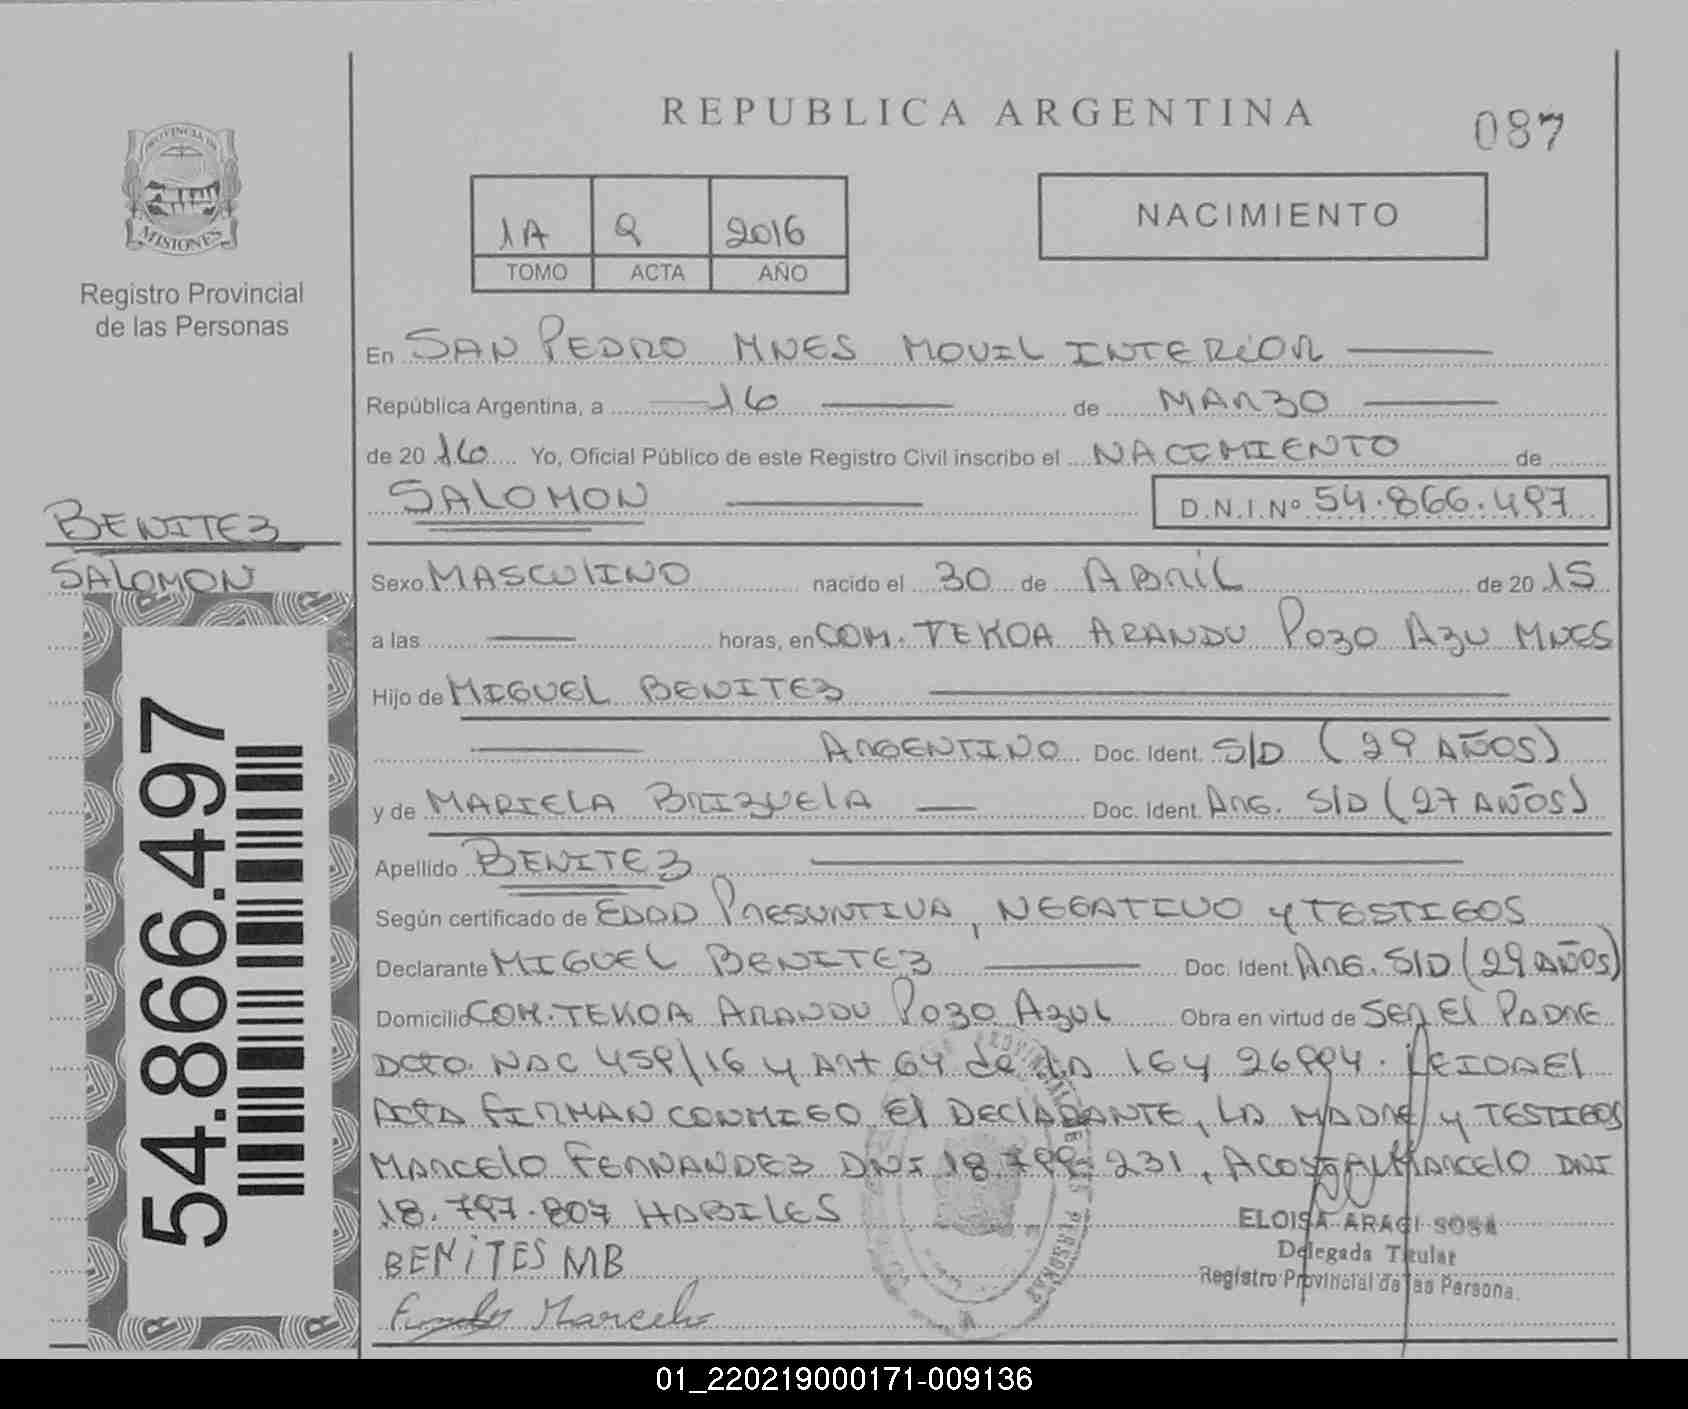 REPUBLICA ARGENTINA
087
PROVINCIA DE
MISIONES
Registro Provincial
de las Personas
1A 9 2016
TOMO ACTA AÑO
NACIMIENTO
En SAN PEDRO MNES MOVIL INTERIOR
República Argentina, a 16 de MARZO
de 2016 Yo, Oficial Público de este Registro Civil inscribo el NACIMIENTO de
SALOMON D.N.I.Nº 54.866.497
BENITEZ
SALOMON
Sexo MASCULINO nacido el 30 de ABRIL de 2015
a las horas, en COM. TEKOA ARANDU POZO AZU MNES
Hijo de MIGUEL BENITEZ
ARGENTINO Doc. Ident. S/D (29 AÑOS)
y de MARIELA BRIZUELA Doc. Ident. ARG. S/D (27 AÑOS)
Apellido BENITEZ
Según certificado de EDAD PRESUNTIVA, NEGATIVO y TESTIGOS
Declarante MIGUEL BENITEZ Doc. Ident. ARG. S/D (29 AÑOS)
Domicilio COM. TEKOA ARANDU POZO AZUL Obra en virtud de SER El PADRE
DCTO. NAC 459/16 y ART 64 de LA LEY 26994. LEIDA El
ACTA FIRMAN CONMIGO El DEClARANTE, LA MADRE y TESTIGOS
MARCELO FERNANDEZ DNI 18.799.231, ACOSTA MARCELO DNI
18.797.807 HABILES
BENITES MB
Marcelo
ELOISA ARAGI SOSA
Delegada Titular
Registro Provincial de las Persona.
54.866.497
01_220219000171-009136